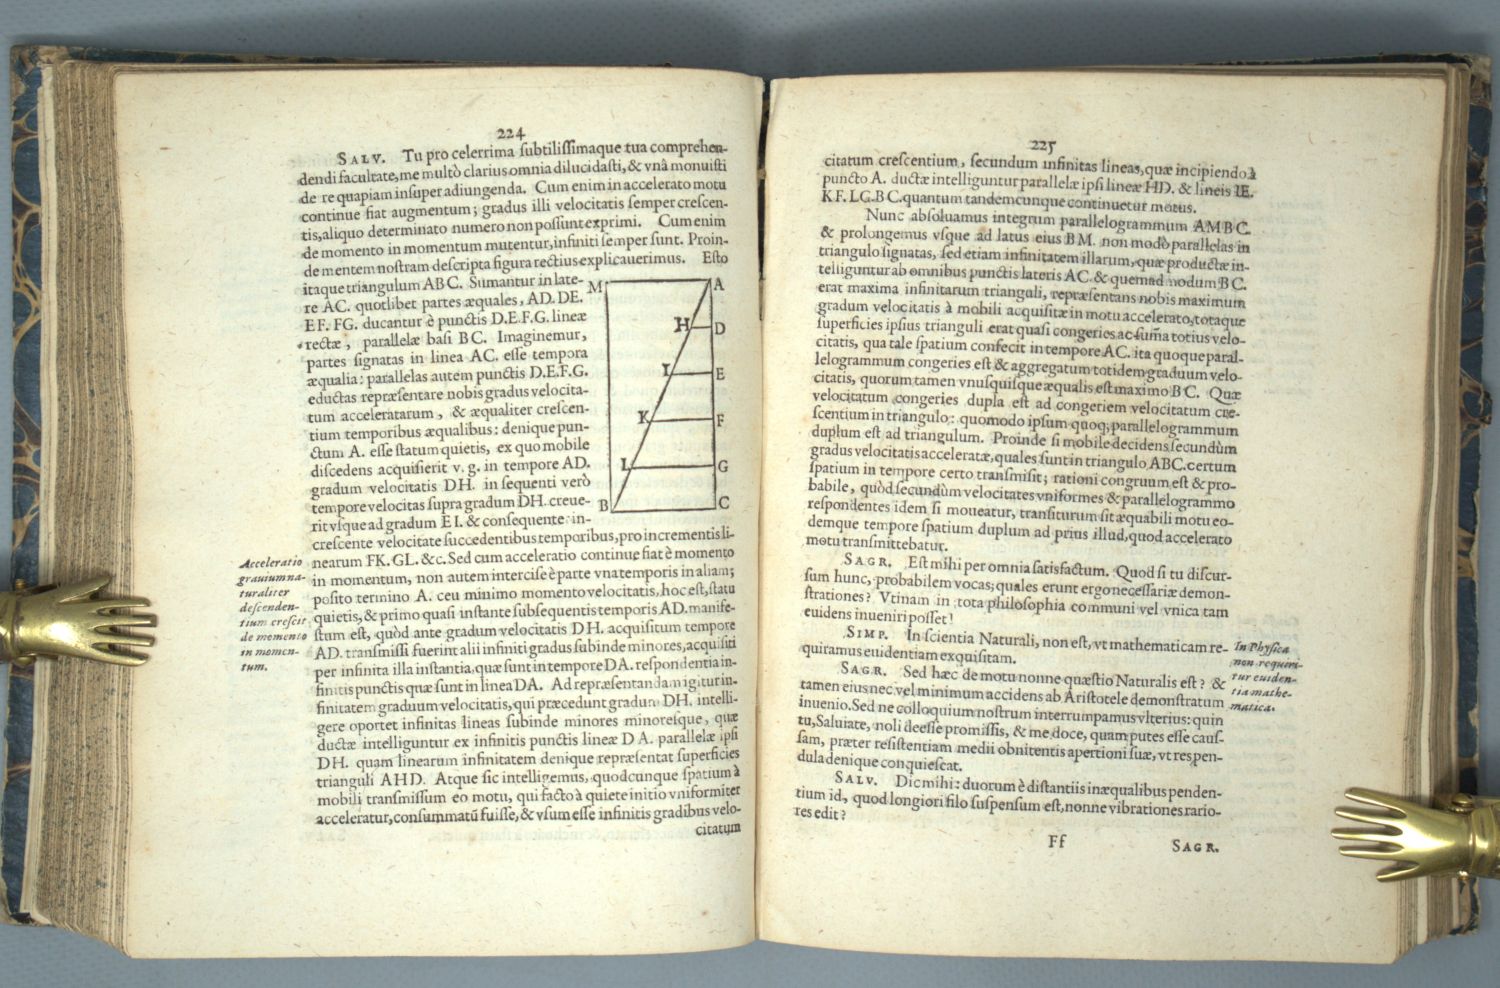 224
SALV. Tu pro celerrima ſubtiliſſimaque tua comprehen-
dendi facultate, me multò clarius omnia dilucidaſti, & vnà monuiſti
de re quapiam inſuper adiungenda. Cum enim in accelerato motu
continue fiat augmentum; gradus illi velocitatis ſemper creſcen-
tis, aliquo determinato numero non poſſunt exprimi. Cum enim
de momento in momentum mutentur, infiniti ſemper ſunt. Proin-
de mentem noſtram deſcripta figura rectius explicauerimus. Eſto
itaque triangulum ABC. Sumantur in late-
re AC. quotlibet partes æquales, AD. DE.
EF. FG. ducantur è punctis D.E.F.G. lineæ
rectæ, parallelæ baſi BC. Imaginemur,
partes ſignatas in linea AC. eſſe tempora
æqualia: parallelas autem punctis D.E.F.G.
eductas repræſentare nobis gradus velocita-
tum acceleratarum, & æqualiter creſcen-
tium temporibus æqualibus: denique pun-
ctum A. eſſe ſtatum quietis, ex quo mobile
diſcedens acquiſierit v. g. in tempore AD.
gradum velocitatis DH. in ſequenti verò
tempore velocitas ſupra gradum DH. creue-
rit vſque ad gradum EI. & conſequenter in-
creſcente velocitate ſuccedentibus temporibus, pro incrementis li-
nearum FK. GL. &c. Sed cum acceleratio continue fiat è momento
in momentum, non autem interciſe è parte vna temporis in aliam;
poſito termino A. ceu minimo momento velocitatis, hoc eſt, ſtatu
quietis, & primo quaſi inſtante ſubſequentis temporis AD. manife-
ſtum eſt, quòd ante gradum velocitatis DH. acquiſitum tempore
AD. tranſmiſſi fuerint alii infiniti gradus ſubinde minores, acquiſiti
per infinita illa inſtantia, quæ ſunt in tempore DA. reſpondentia in-
finitis punctis quæ ſunt in linea DA. Ad repræſentandam igitur in-
finitatem graduum velocitatis, qui præcedunt gradum DH. intelli-
gere oportet infinitas lineas ſubinde minores minoreſque, quæ
ductæ intelliguntur ex infinitis punctis lineæ DA. parallelæ ipſi
DH. quam linearum infinitatem denique repræſentat ſuperficies
trianguli AHD. Atque ſic intelligemus, quodcunque ſpatium à
mobili tranſmiſſum eo motu, qui facto à quiete initio vniformiter
acceleratur, conſummatū fuiſſe, & vſum eſſe infinitis gradibus velo-
citatum
M A
H D
I E
K F
L G
B C
Acceleratio
grauium na-
turaliter
deſcenden-
tium creſcit
de momento
in momen-
tum.
225
citatum creſcentium, ſecundum infinitas lineas, quæ incipiendo à
puncto A. ductæ intelliguntur parallelæ ipſi lineæ HD. & lineis IE.
KF. LG. BC. quantum tandemcunque continuetur motus.
Nunc abſoluamus integrum parallelogrammum AMBC.
& prolongemus vſque ad latus eius BM. non modò parallelas in
triangulo ſignatas, ſed etiam infinitatem illarum, quæ productæ in-
telliguntur ab omnibus punctis lateris AC. & quemadmodum BC.
erat maxima infinitarum trianguli, repræſentans nobis maximum
gradum velocitatis à mobili acquiſitæ in motu accelerato, totaque
ſuperficies ipſius trianguli erat quaſi congeries ac ſum̄a totius velo-
citatis, qua tale ſpatium confecit in tempore AC. ita quoque paral-
lelogrammum congeries eſt & aggregatum totidem graduum velo-
citatis, quorum tamen vnuſquiſque æqualis eſt maximo BC. Quæ
velocitatum congeries dupla eſt ad congeriem velocitatum cre-
ſcentium in triangulo: quomodo ipſum quoq; parallelogrammum
duplum eſt ad triangulum. Proinde ſi mobile decidens ſecundùm
gradus velocitatis acceleratæ, quales ſunt in triangulo ABC. certum
ſpatium in tempore certo tranſmiſit; rationi congruum eſt & pro-
babile, quòd ſecundùm velocitates vniformes & parallelogrammo
reſpondentes idem ſi moueatur, tranſiturum ſit æquabili motu eo-
demque tempore ſpatium duplum ad prius illud, quod accelerato
motu tranſmittebatur.
SAGR. Eſt mihi per omnia ſatisfactum. Quod ſi tu diſcur-
ſum hunc, probabilem vocas; quales erunt ergo neceſſariæ demon-
ſtrationes? Vtinam in tota philoſophia communi vel vnica tam
euidens inueniri poſſet!
SIMP. In ſcientia Naturali, non eſt, vt mathematicam re-
quiramus euidentiam exquiſitam.
SAGR. Sed hæc de motu nonne quæſtio Naturalis eſt? &
tamen eius nec vel minimum accidens ab Ariſtotele demonſtratum
inuenio. Sed ne colloquium noſtrum interrumpamus vlterius: quin
tu, Saluiate, noli deeſſe promiſſis, & me doce, quam putes eſſe cauſ-
ſam, præter reſiſtentiam medii obnitentis apertioni ſuæ, vt res pen-
dula denique conquieſcat.
SALV. Dic mihi: duorum è diſtantiis inæqualibus penden-
tium id, quod longiori filo ſuſpenſum eſt, nonne vibrationes rario-
res edit?
Ff SAGR.
In Phyſica
non requiri-
tur euiden-
tia mathe-
matica.